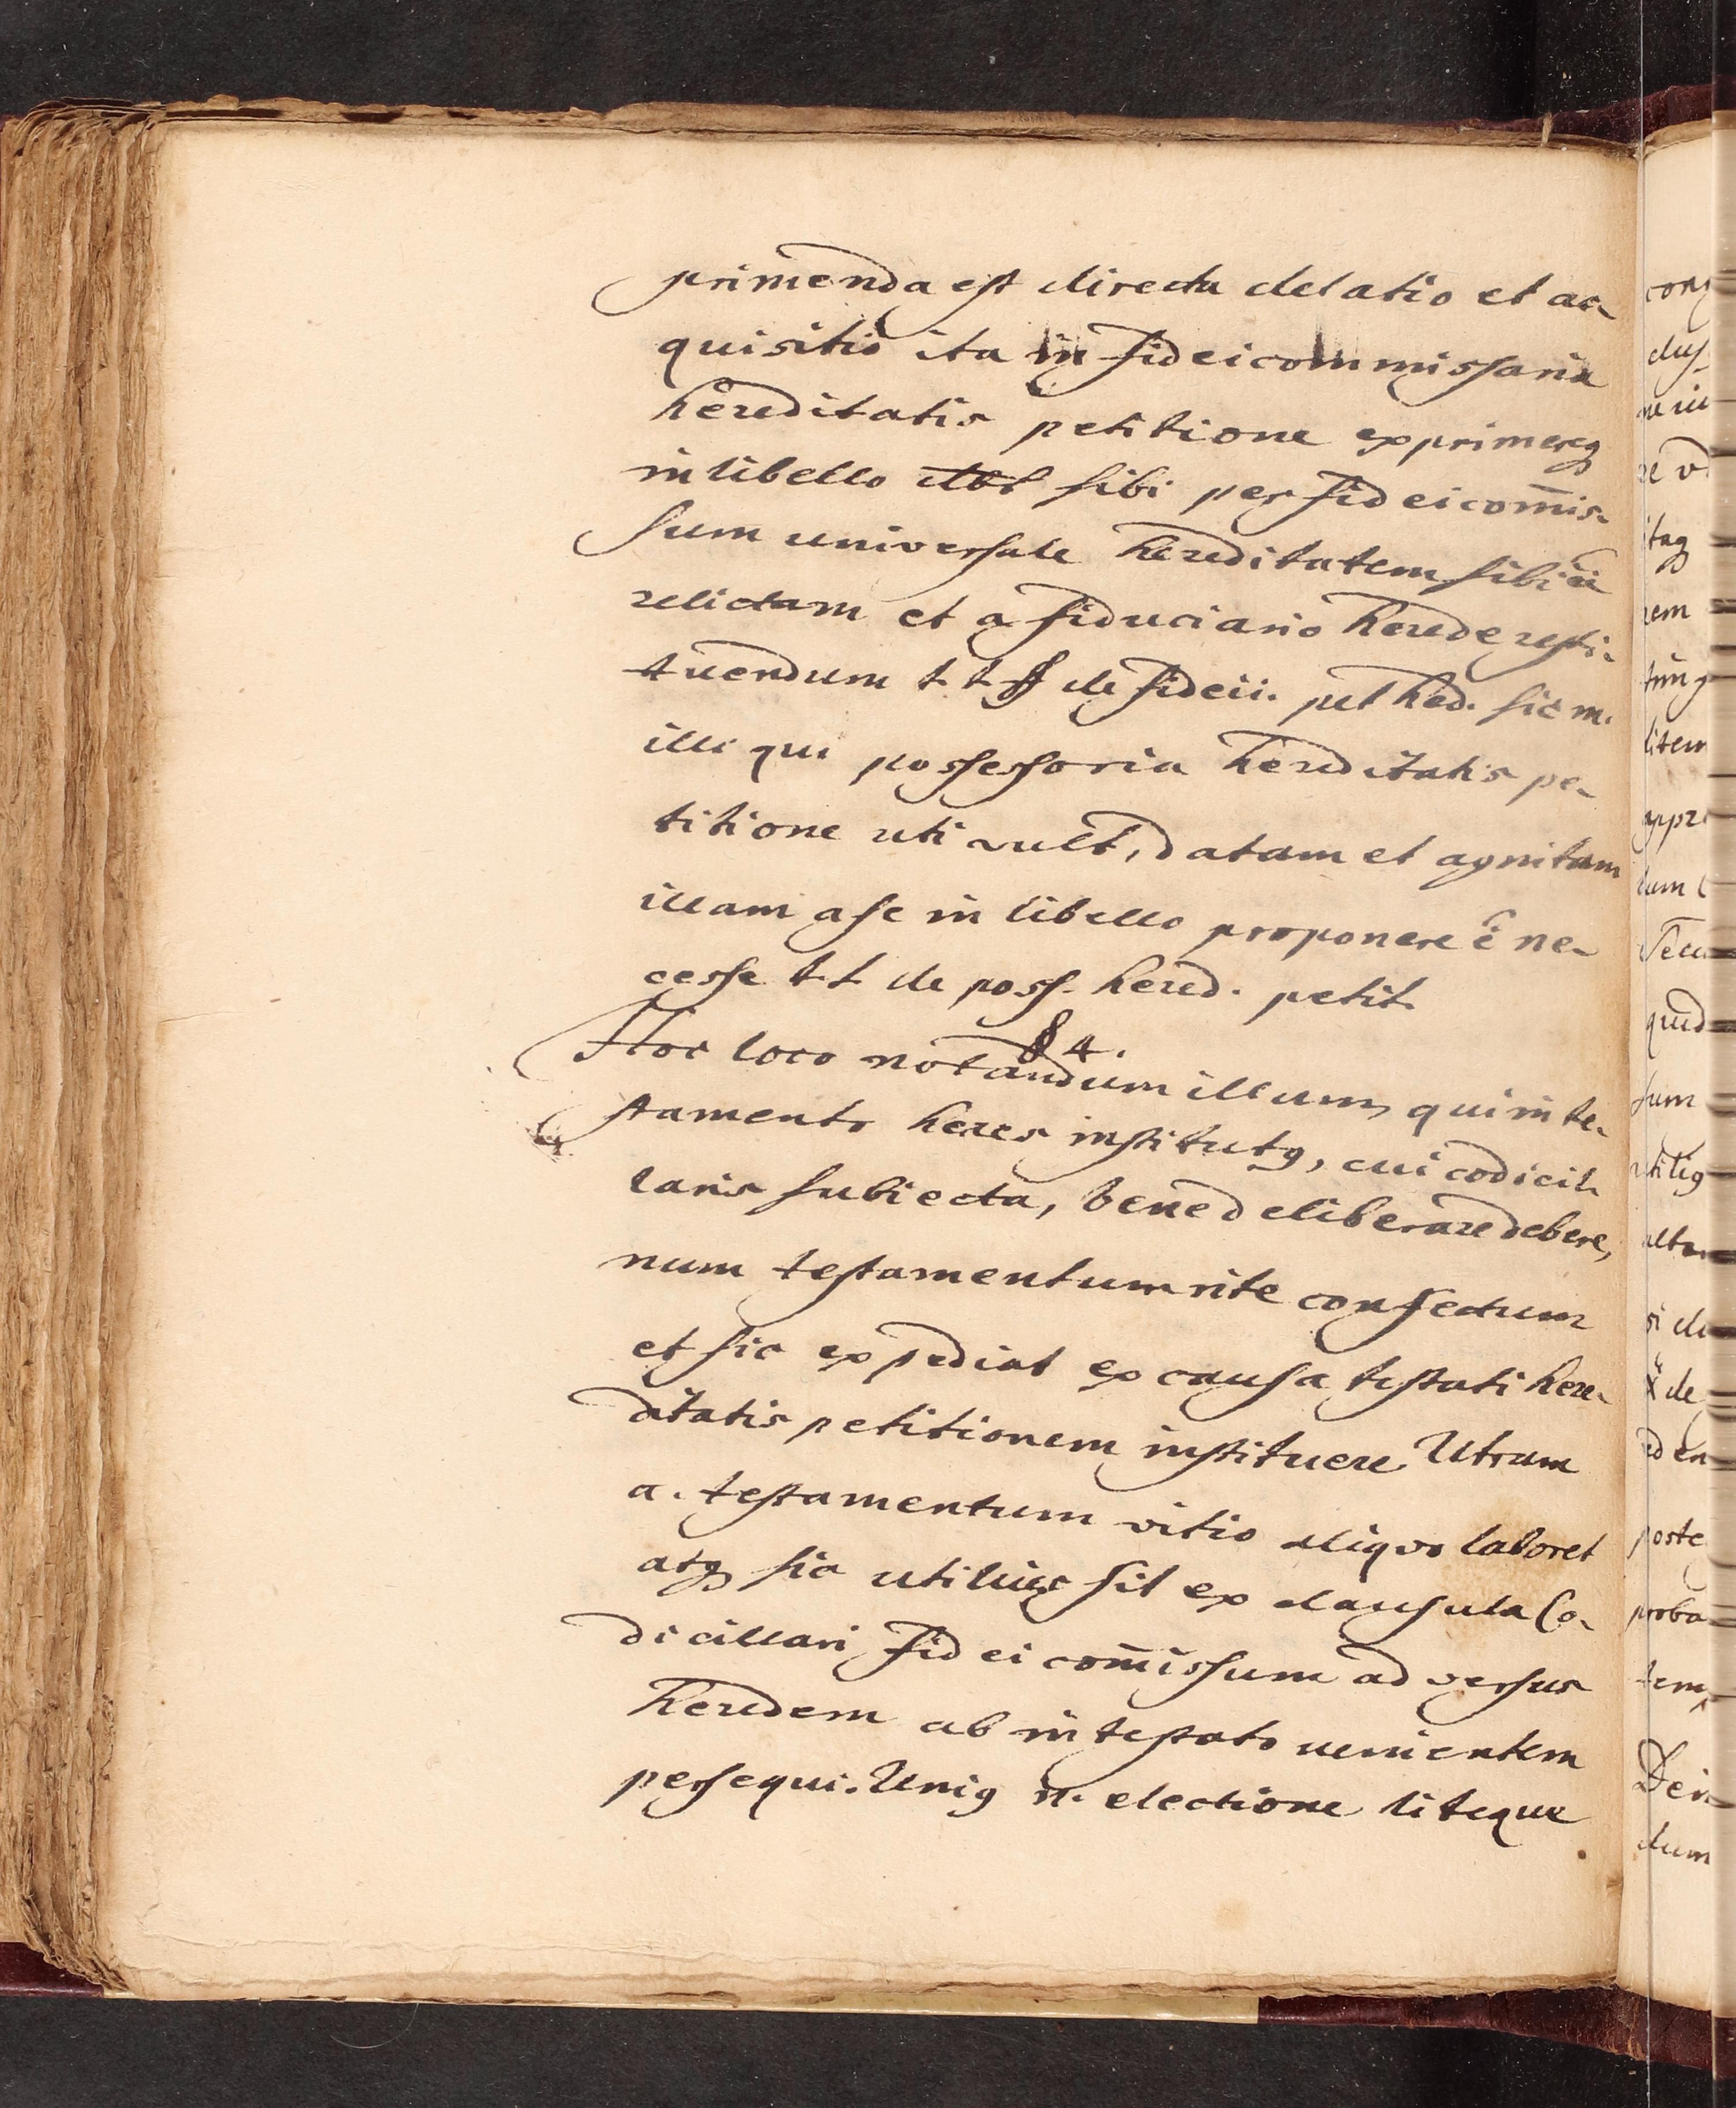 primenda est directa delatio et ac-
quisitio ita in fideicommissaria
hereditatis petitione exprimereq
in libello sibi per fideicom̄is-
sum universale hereditatem sibi
relictam et a fiduciario herede resti-
tuendum t. t. ff de fideii. pet hed. sic m.
illi qui possessoria hereditatis pe-
titione uti vult, datam et agnitam
illam a se in libello proponere ē ne-
cesse t. t. de poss. hered. petit.
§ 4.
Hoc loco notandum illum, qui in te-
stamento heres institutq, cui codicil-
laris subiecta, bene deliberare debere,
num testamentum rite confectum
et sic expediat ex causa testati here-
ditatis petitionem instituere Utrum
a. testamentum vitio aliquo laboret
atq sic utilius sit ex clausula Co-
dicillari fideicom̄issum adversus
heredem ab intestato venientem
persequi. Uniq n. electione liteque